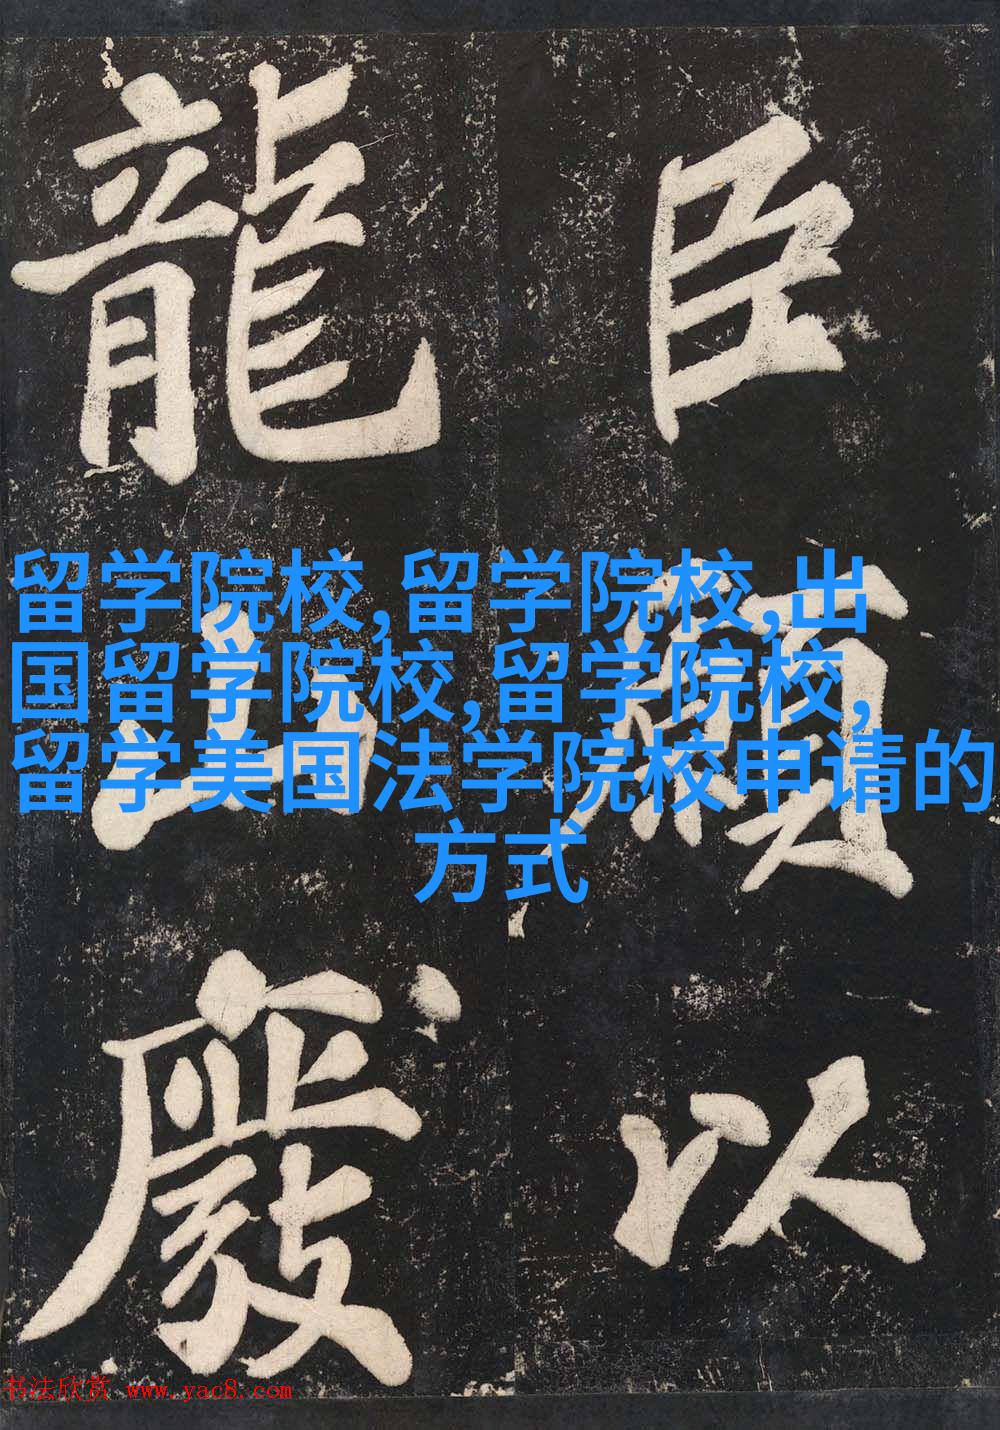 臣願以
龍山
留学院校,留学院校,出
国留学院校,留学院校,
留学美国法学院校申请的
方式
书法欣赏 www.yac8.com